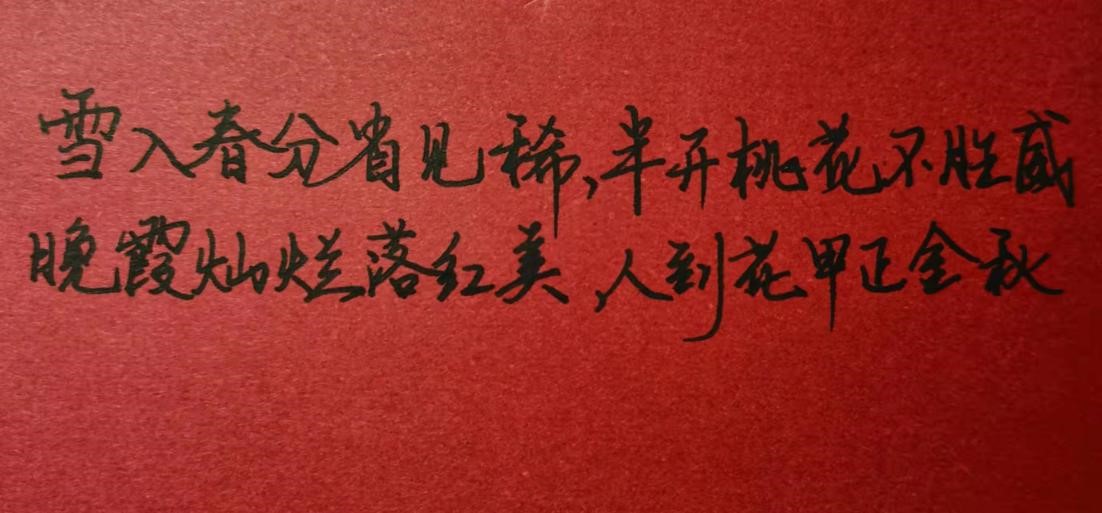 雪入春分省见稀,半开桃花不胜威
晚霞灿烂落红美,人到花甲正金秋